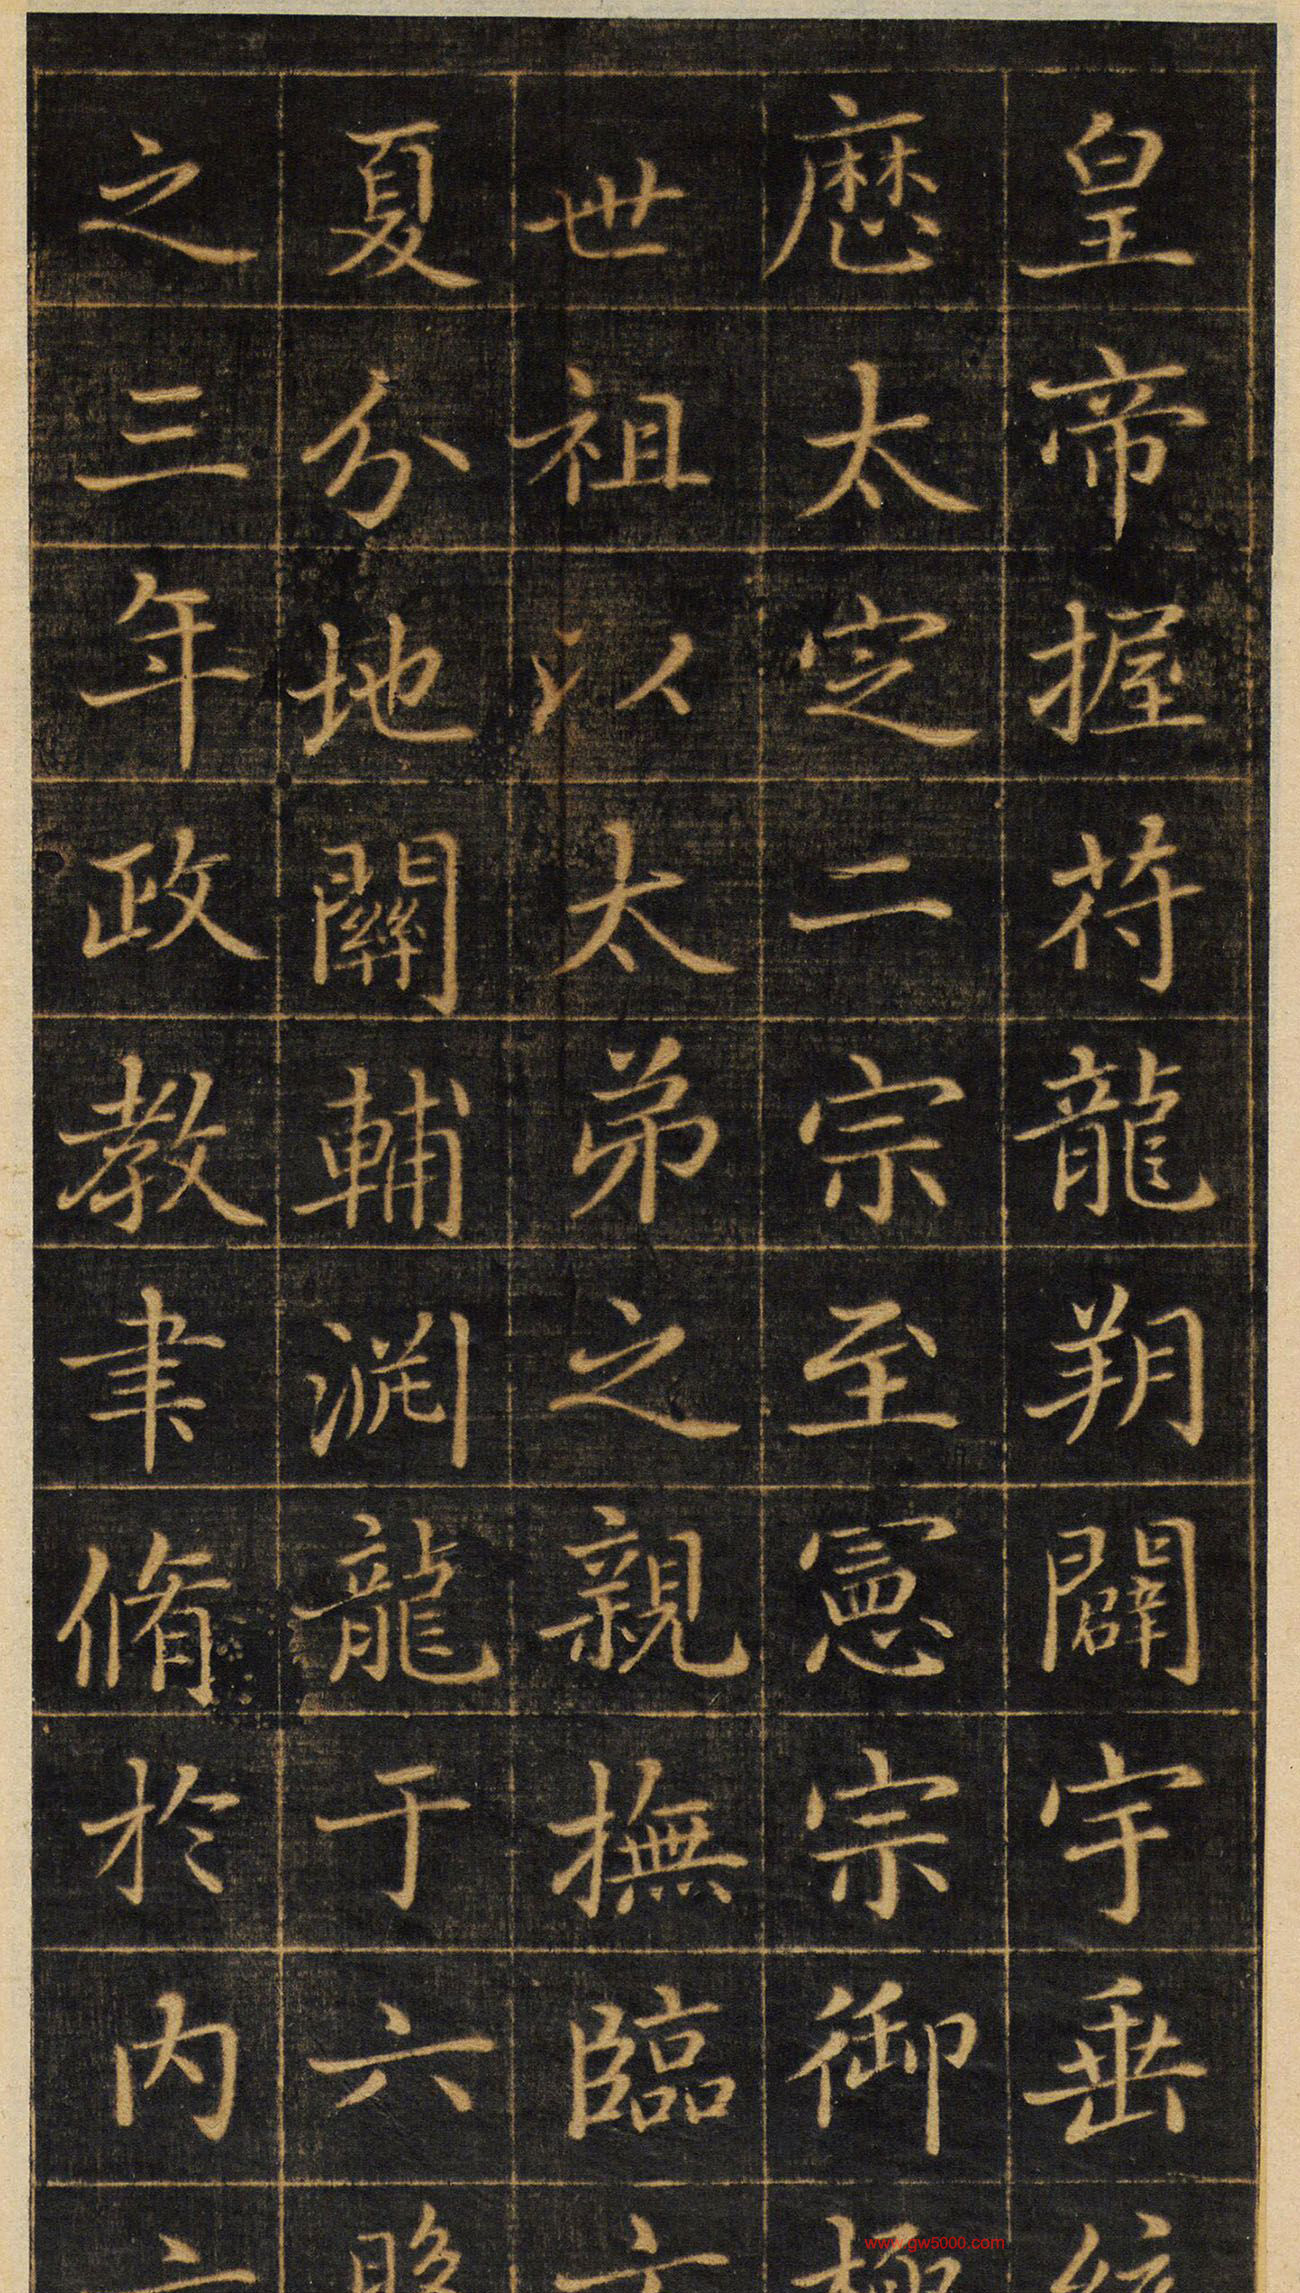 皇帝握符龍朔闢宇垂統
厯太定二宗至憲宗御極
世祖以太弟之親撫臨方
夏分地關輔淵龍于六盤
之三年政教聿脩於內
www.gw5000.com